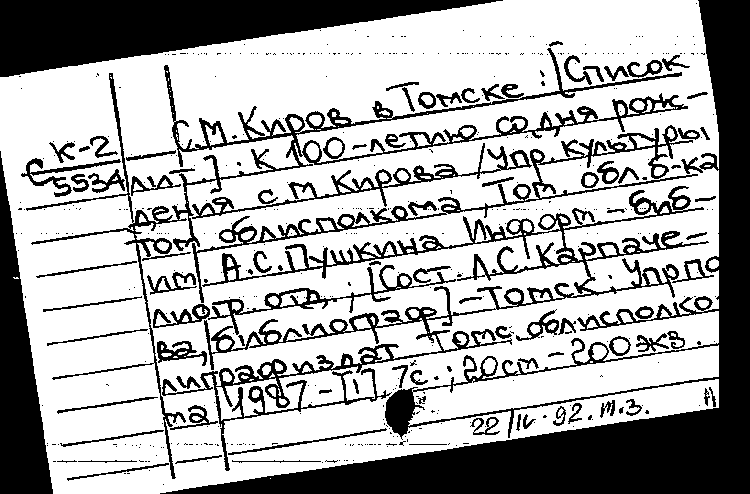 С.М. Киров в Томске : [Список
К-2
С 5534
лит.] : К 100-летию со дня рож-
дения С.М. Кирова / Упр. культуры
Том облисполкома, Том. обл. б-ка
им. А.С. Пушкина. Информ-биб-
лиогр. отд. ; [Сост. Л.С. Карпаче-
ва, библиограф] - Томск : Упр по
лиграфиздат Томс. облисполко-
ма 1987. - [1], 7с. ; 20см. - 200 экз.
22/IV-92. М.З.